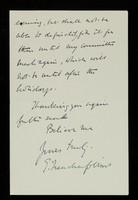 evening, but shall not be
able to definitely fix it for
them until my committee
meets again, which will
not be until after the
holidays.
Thanking you again
for the
Believe me
Yours truly.